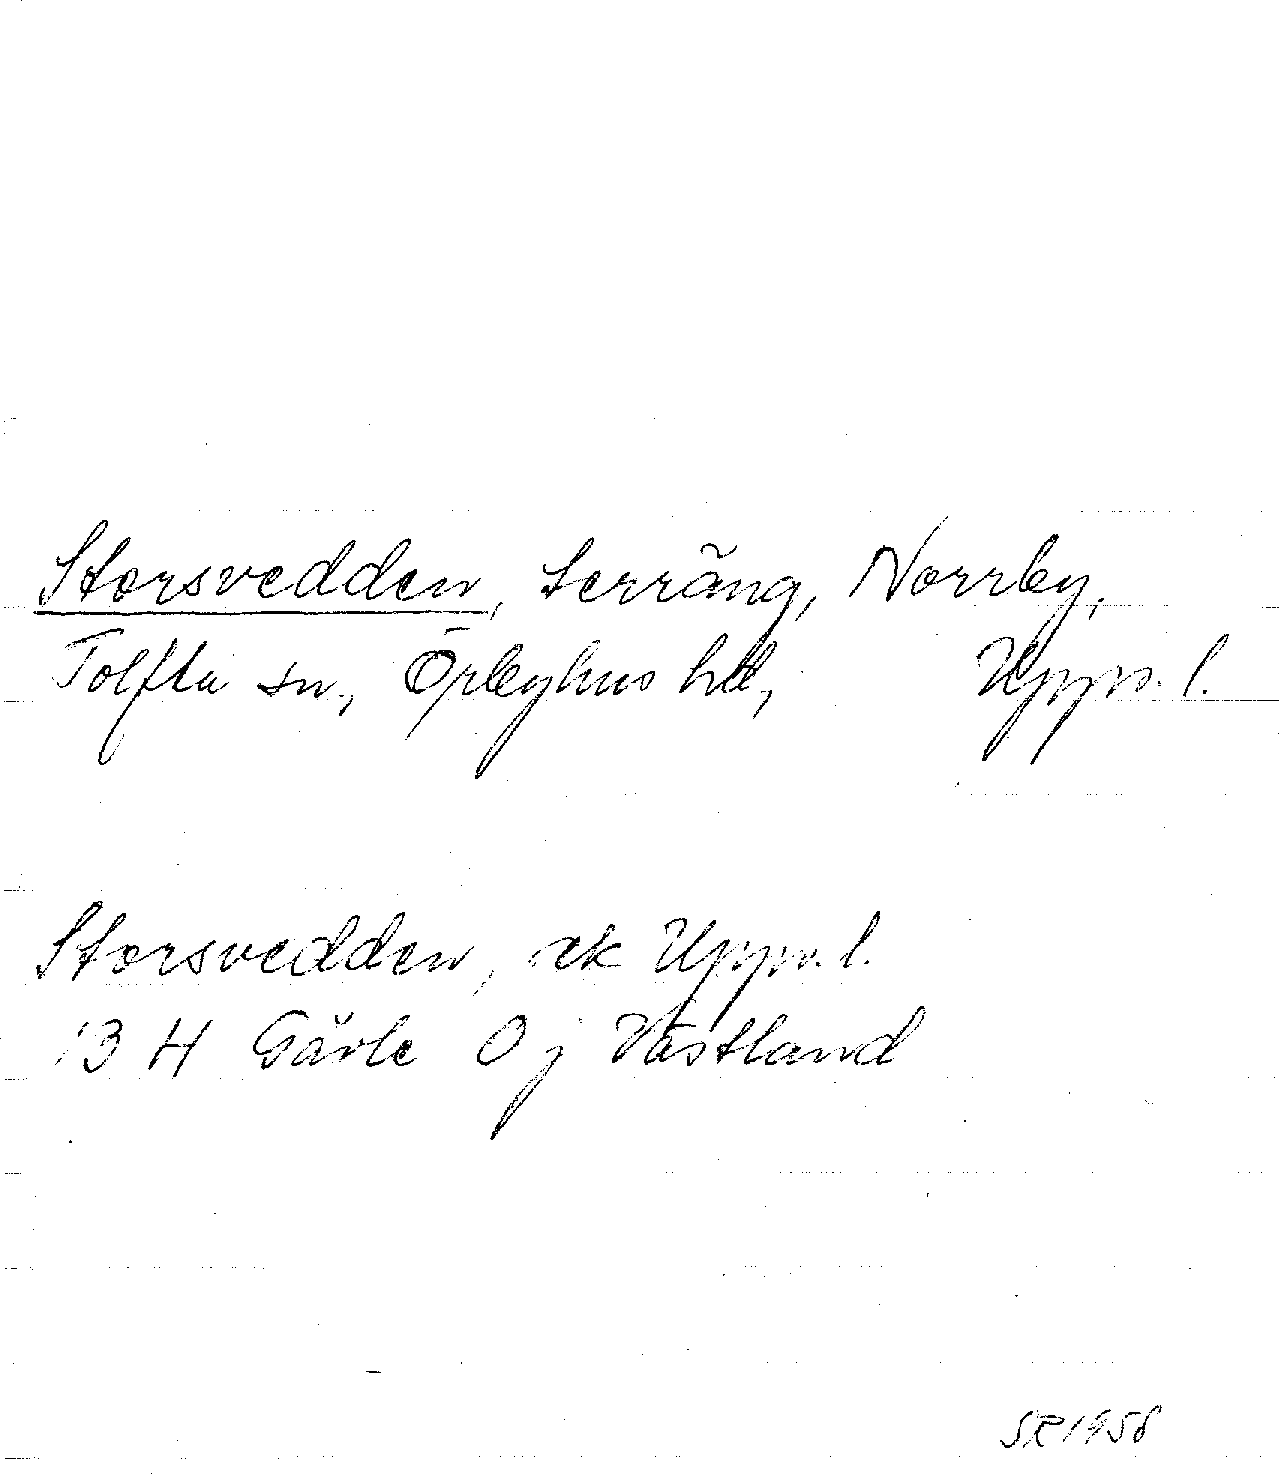 Storsvedden, terräng, Norrby,
Tolfta sn., Örbyhus hd, Upps. l.
Storsvedden, ek Upps. l.
13 H Gävle 0 j Västland
SR 1958